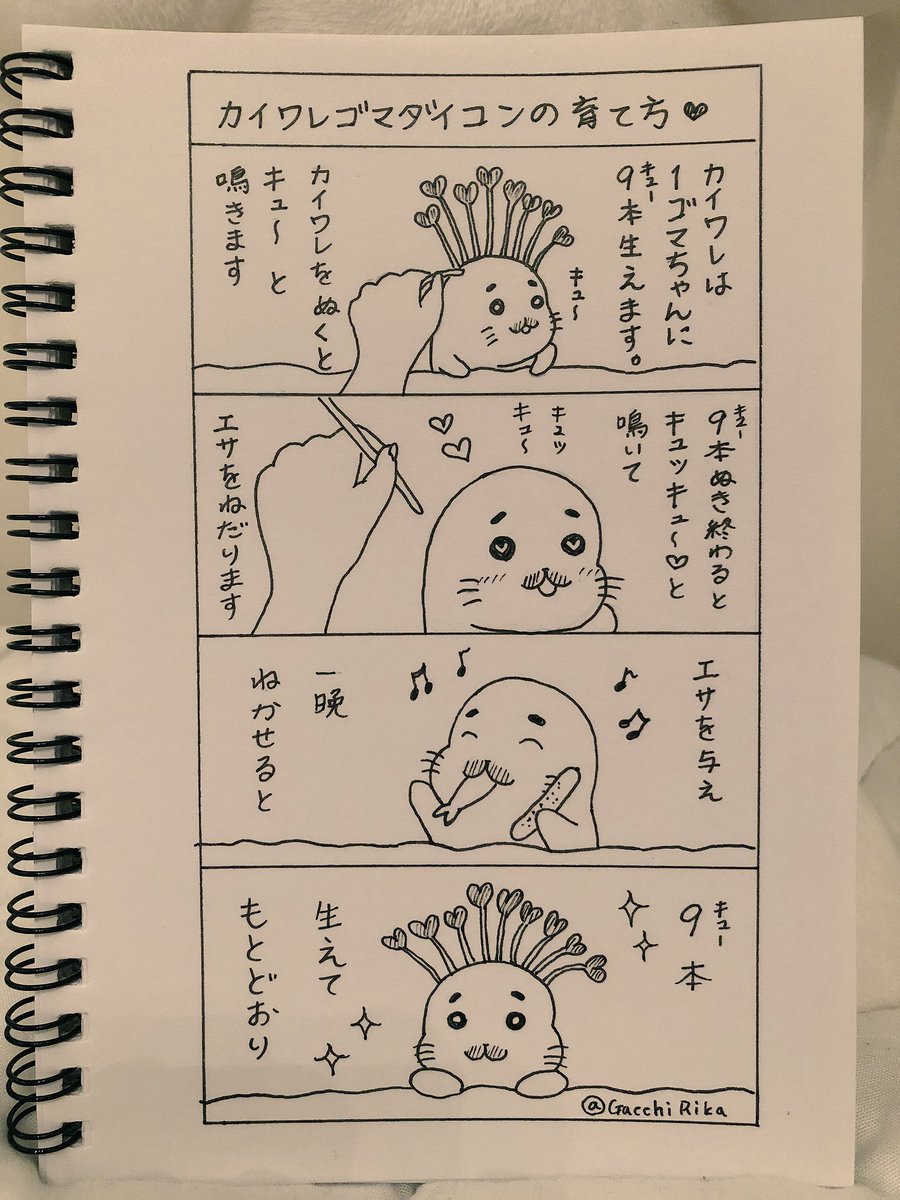 カイワレゴマダイコンの育て方♥
カイワレは
1ゴマちゃんに
9本生えます。
キュー
キュ〜
カイワレをぬくと
キュ〜と
鳴きます
9本ぬき終わると
キュー
キュッキュ〜♡と
鳴いて
キュッ
キュ〜
エサをねだります
エサを与え
一晩
ねかせると
9本
キュー
生えて
もとどおり
@Gacchi Rika